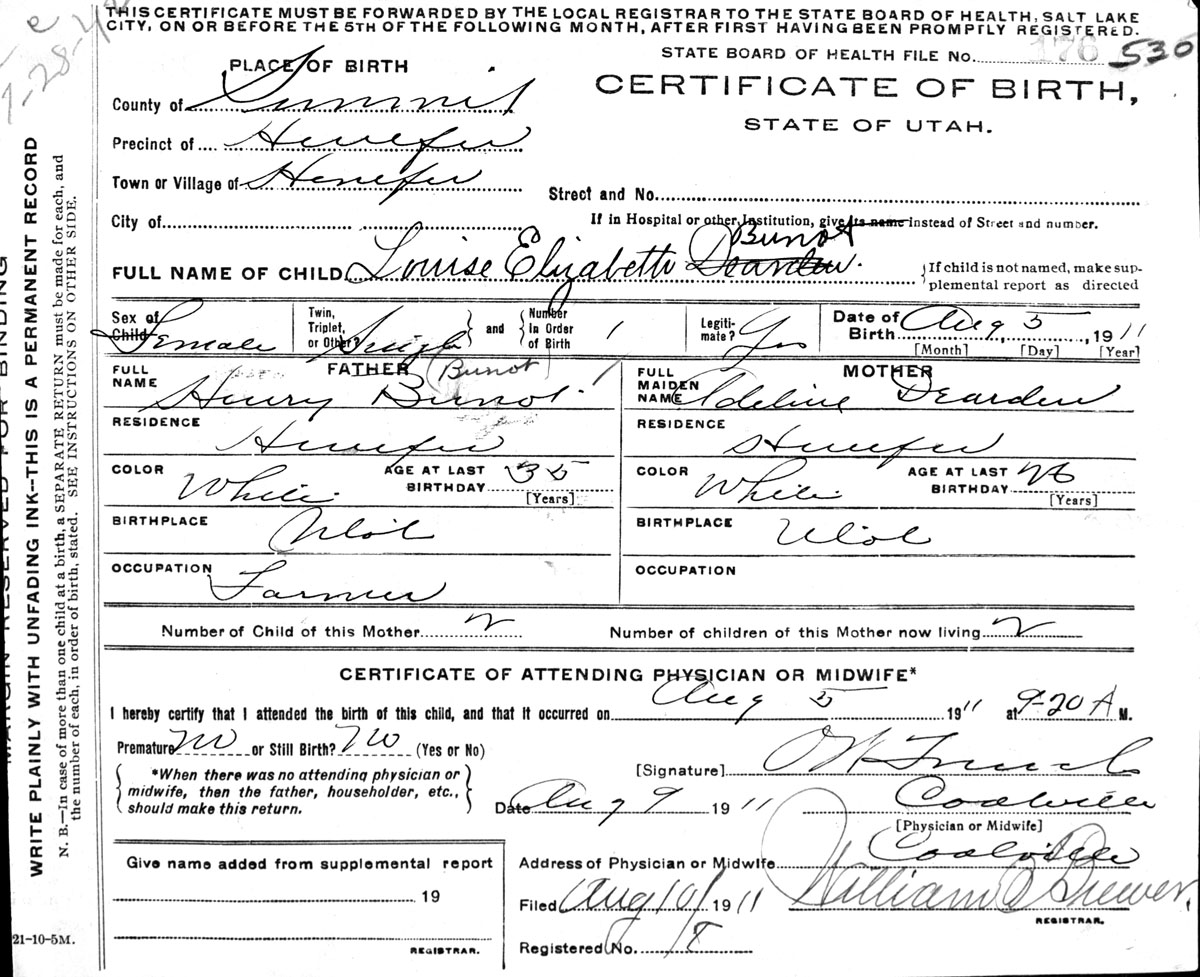 THIS CERTIFICATE MUST BE FORWARDED BY THE LOCAL REGISTRAR TO THE STATE BOARD OF HEALTH, SALT LAKE
CITY, ON OR BEFORE THE 5TH OF THE FOLLOWING MONTH, AFTER FIRST HAVING BEEN PROMPTLY REGISTERED.
STATE BOARD OF HEALTH FILE No. 176 530
PLACE OF BIRTH
CERTIFICATE OF BIRTH,
STATE OF UTAH.
County of Summit
Precinct of Henefer
Town or Village of Henefer
Street and No.
City of
If in Hospital or other Institution, give its name instead of Street and number.
Bunot
FULL NAME OF CHILD Louise Elizabeth Dearden.
If child is not named, make sup-
plemental report as directed
Sex of Child Female
Twin, Triplet, or Other? Single
and
Number In Order of Birth 1
Legiti-mate? Yes
Date of Birth Aug 5, 1911
[Month] [Day] [Year]
FATHER (Bunot)
FULL NAME Henry Bunot
RESIDENCE Henefer
COLOR White
AGE AT LAST BIRTHDAY 35
[Years]
BIRTHPLACE Utah
OCCUPATION Farmer
MOTHER
FULL MAIDEN NAME Adeline Dearden
RESIDENCE Henefer
COLOR White
AGE AT LAST BIRTHDAY 26
[Years]
BIRTHPLACE Utah
OCCUPATION
Number of Child of this Mother 2
Number of children of this Mother now living 2
CERTIFICATE OF ATTENDING PHYSICIAN OR MIDWIFE*
I hereby certify that I attended the birth of this child, and that it occurred on Aug 5 1911 at 9-20 A M.
Premature No or Still Birth? No (Yes or No)
*When there was no attending physician or
midwife, then the father, householder, etc.,
should make this return.
[Signature]
Date Aug 9 1911
Coalville
[Physician or Midwife]
Give name added from supplemental report
19
REGISTRAR.
Address of Physician or Midwife Coalville
Filed Aug 10 1911 William Brewer
REGISTRAR.
Registered No. 18
21-10-5M.
MARGIN RESERVED FOR BINDING
WRITE PLAINLY WITH UNFADING INK--THIS IS A PERMANENT RECORD
N. B.—In case of more than one child at a birth, a SEPARATE RETURN must be made for each, and
the number of each, in order of birth, stated. SEE INSTRUCTIONS ON OTHER SIDE.